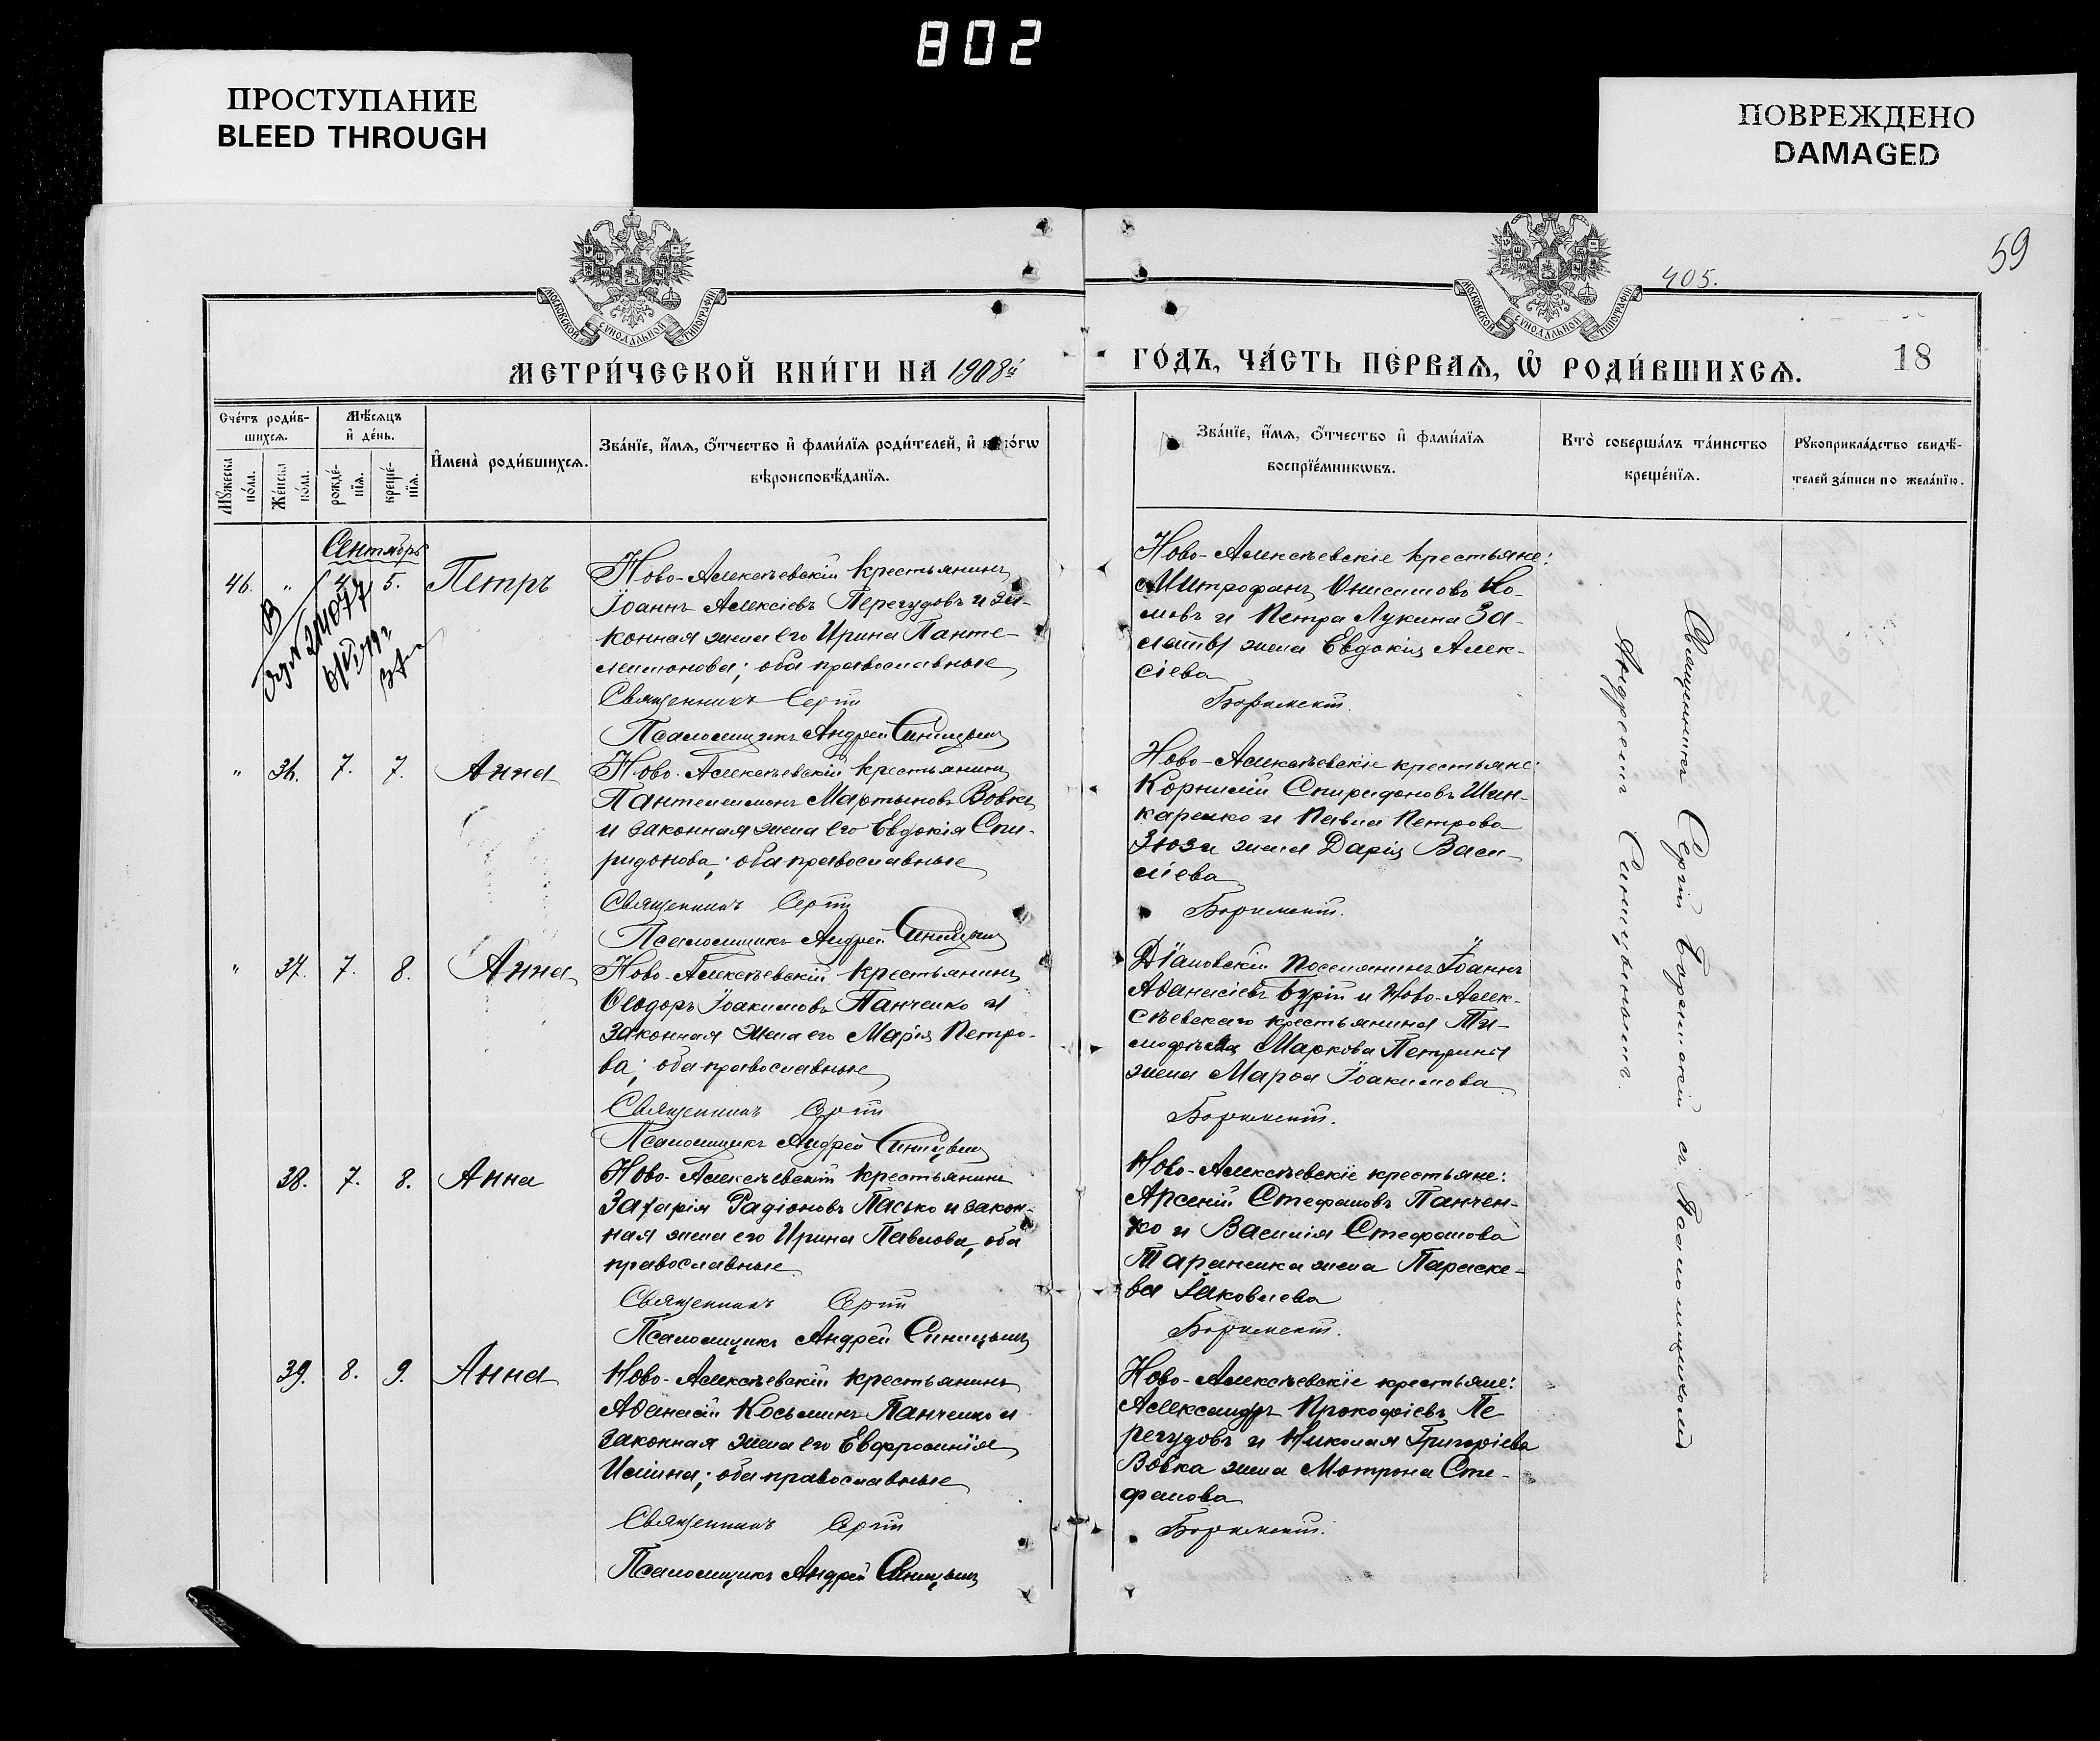 802
ПРОСТУПАНИЕ
BLEED THROUGH
ПОВРЕЖДЕНО
DAMAGED
59
405.
МОСКОВСКОЙ СѴНОДАЛЬНОЙ ТИПОГРАФІИ
МОСКОВСКОЙ СѴНОДАЛЬНОЙ ТИПОГРАФІИ
МЕТРИ́ЧЕСКОЙ КНИ́ГИ НА 1908й
ГО́ДЪ, ЧА́СТЬ ПЕ́РВАѦ, Ѡ҆ РОДИ́ВШИХСѦ.
18
Сче́тъ роди́в-
шихсѧ.
Мꙋ́жеска по́ла.
Же́нска по́ла.
Мѣ́сѧцъ
и҆ де́нь.
рожде́-
нїѧ.
креще́-
нїѧ.
И҆мена̀ роди́вшихсѧ.
Зва́нїе, и҆́мѧ, ѻ҆́тчество и҆ фами́лїѧ роди́телей, и҆ ко́гѡ
вѣроисповѣ́данїѧ.
Зва́нїе, и҆́мѧ, ѻ҆́тчество и҆ фами́лїѧ
воспрїе́мникѡвъ.
Кто̀ соверша́лъ та́инство
креще́нїѧ.
Рꙋкоприкла́дство свидѣ́-
телей за́писи по жела́нїю.
Сентябрь
46. " 4. 5. Петръ
Ново-Алексѣевскій крестьянинъ
Іоаннъ Алексіевъ Перегудовъ и за-
конная жена его Ирина Панте-
леимонова; оба православные
Священникъ Сергій
Псаломщикъ Андрей Синицынъ
Ново-Алексѣевскіе крестьяне:
Митрофанъ Онисимовъ
и Петра Лукина
жена Евдокія Алек-
сіева
" 36. 7. 7. Анна
Ново-Алексѣевскій крестьянинъ
Пантелеимонъ Мартыновъ Вовкъ
и законная жена его Евдокія Спи-
ридонова; оба православные
Священникъ Сергій
Псаломщикъ Андрей Синицынъ
Ново-Алексѣевскіе крестьяне:
Корнилій Спиридоновъ Шин-
каренко и Павла Петрова
Зюзи жена Дарія Васи-
ліева
" 37. 7. 8. Анна
Ново-Алексѣевскій крестьянинъ
Ѳеодоръ Іоакимовъ Панченко и
законная жена его Марія Петро-
ва; оба православные
Священникъ Сергій
Псаломщикъ Андрей Синицынъ
поселянинъ Іоаннъ
Аѳанасіевъ и Ново-Алек-
сѣевскаго крестьянина Ти-
моѳея Маркова
жена Марѳа Іоакимова
38. 7. 8. Анна
Ново-Алексѣевскій крестьянинъ
Захарія Радіоновъ Пасько и закон-
ная жена его Ирина Павлова, оба
православные
Священникъ Сергій
Псаломщикъ Андрей Синицынъ
Ново-Алексѣевскіе крестьяне:
Арсеній Стефановъ Панчен-
ко и Василія Стефанова
жена Параске-
ва Іаковлева
39. 8. 9. Анна
Ново-Алексѣевскій крестьянинъ
Аѳанасій Косьминъ Панченко и
законная жена его Евфросинія
Иліина; оба православные
Священникъ Сергій
Псаломщикъ Андрей Синицынъ
Ново-Алексѣевскіе крестьяне:
Александръ Прокофіевъ Пе
регудовъ и Николая Григоріева
Вовка жена Мотрона Сте-
фанова
Священникъ Сергій съ Псаломщикомъ
Андреемъ Синицынымъ.